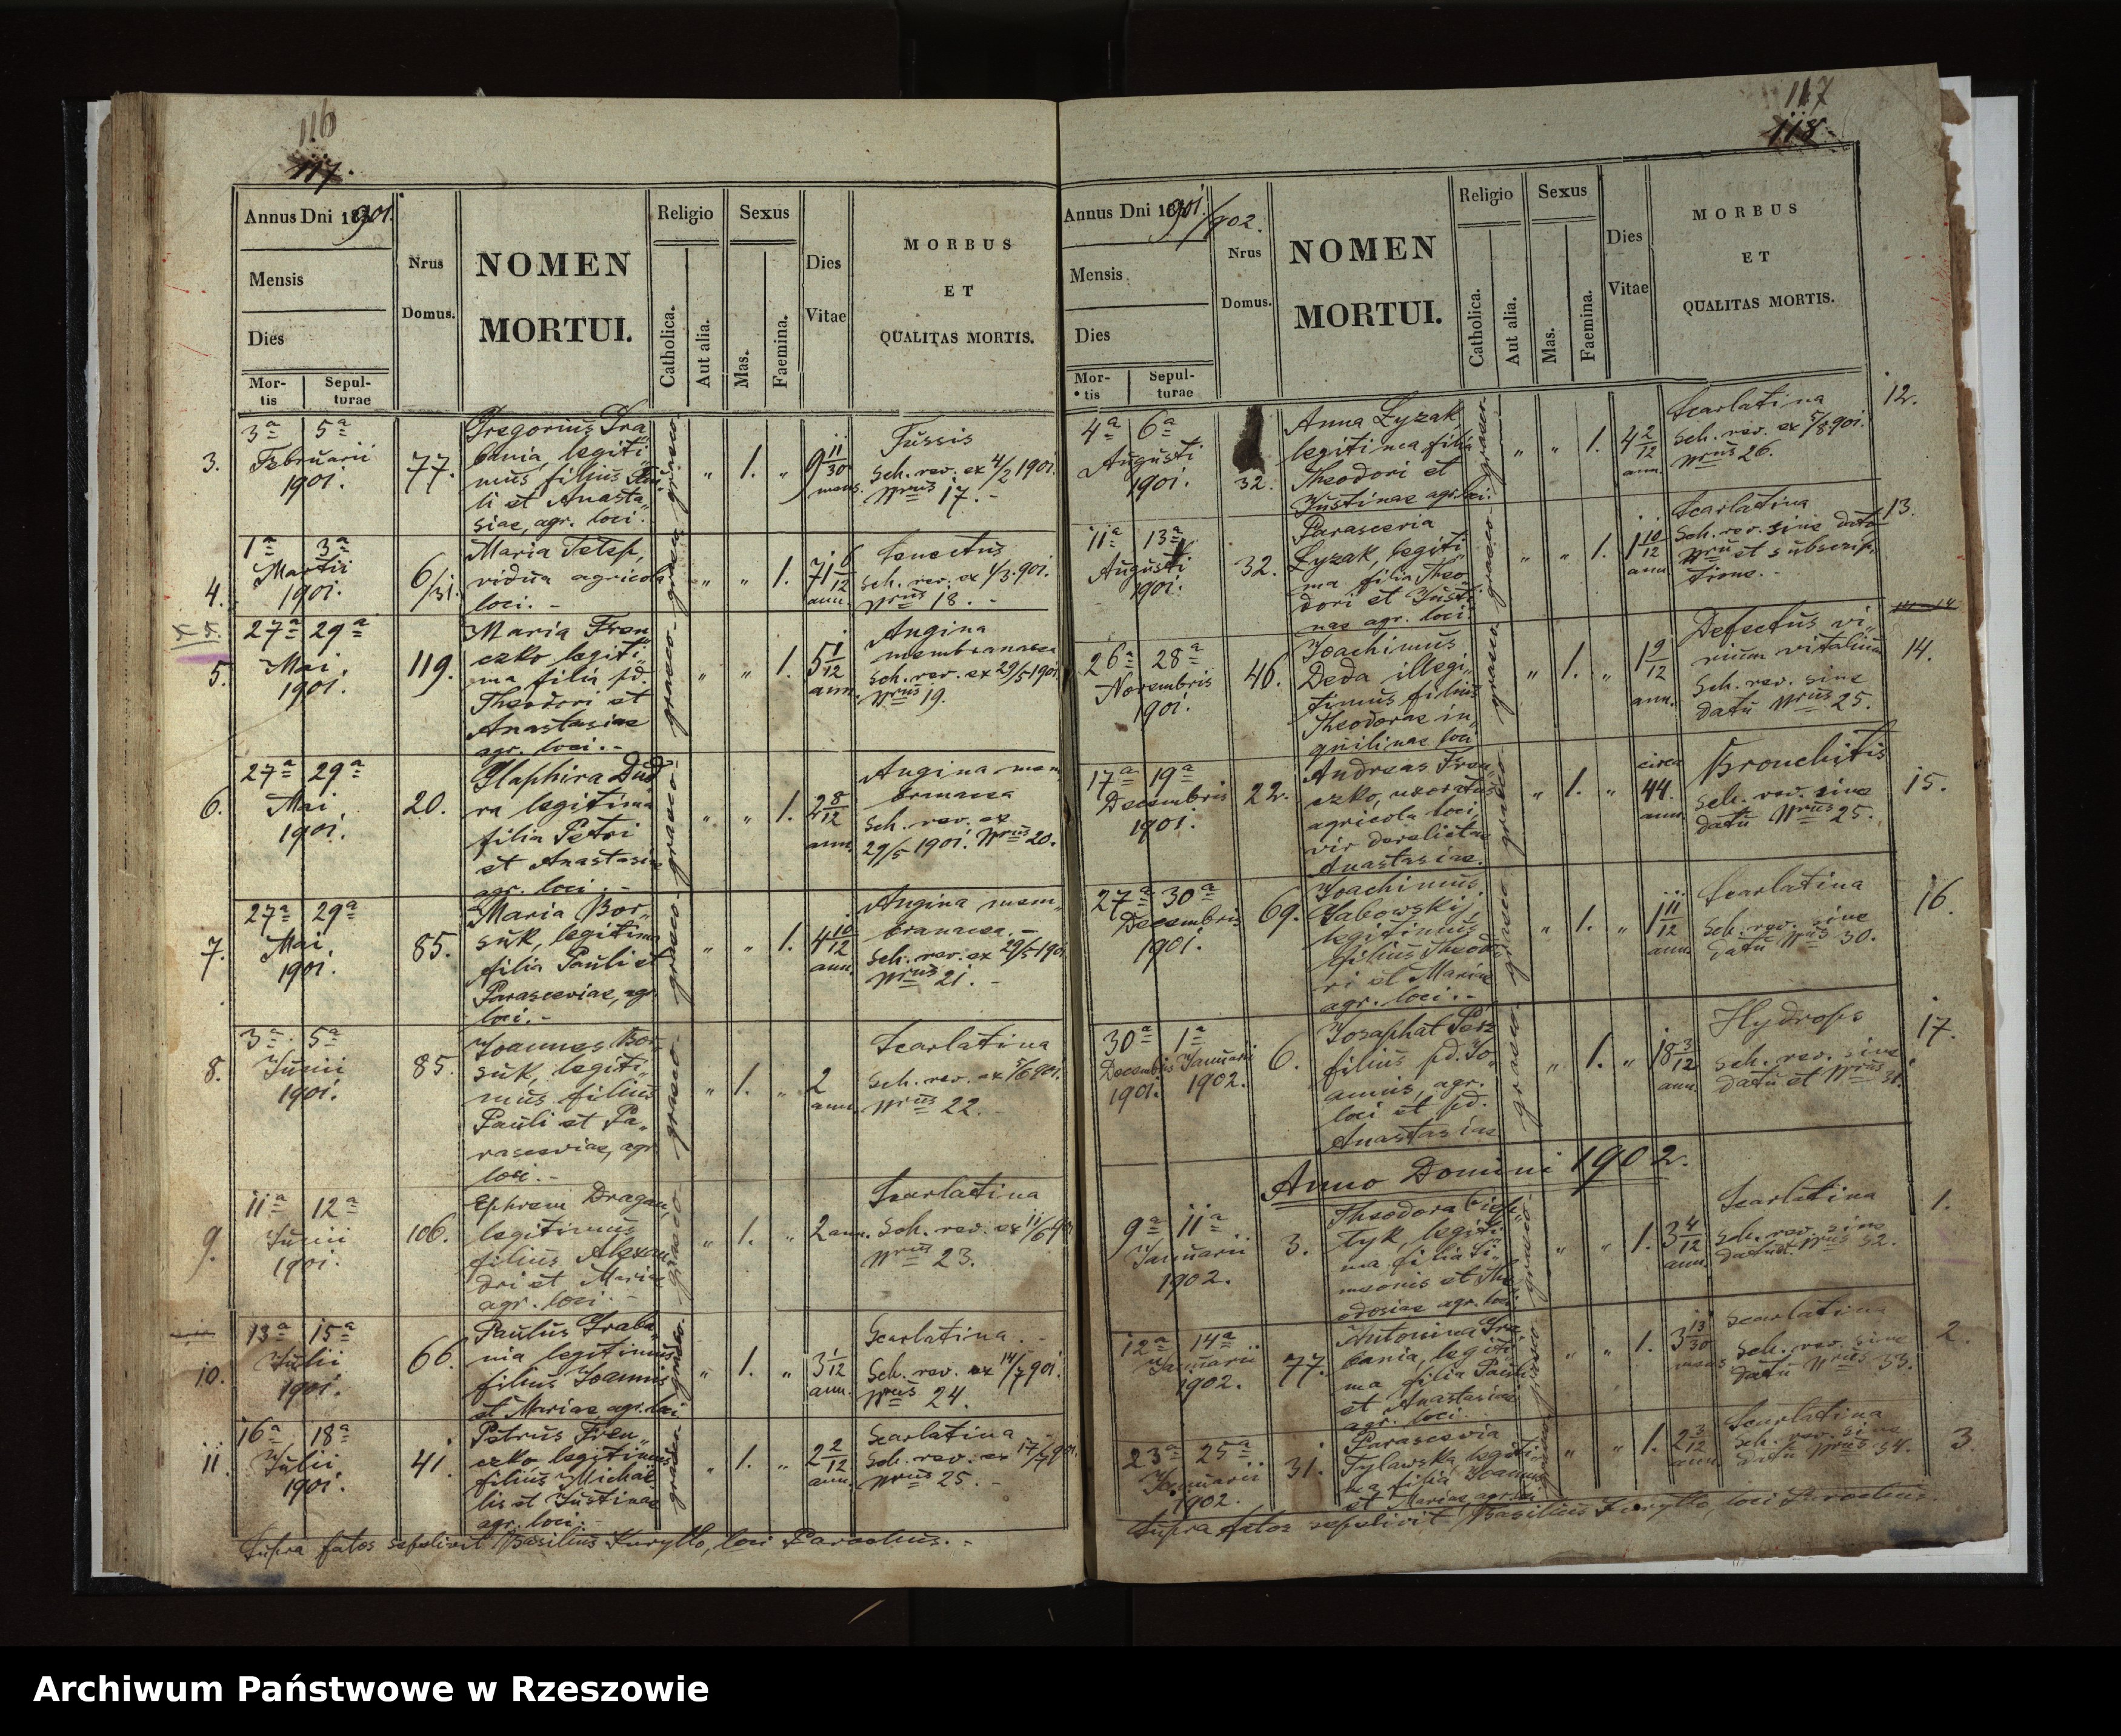 116
117.
Annus Dni 1901.
Mensis
Dies
Mor-
tis
Sepul-
turae
Nrus
Domus.
NOMEN
MORTUI.
Religio
Catholica.
Aut alia.
Sexus
Mas.
Faemina.
Dies
Vitae
MORBUS
ET
QUALITAS MORTIS.
3.
3a 5a
Februarii
1901.
77.
Gregorius Gra„
bania, legiti„
mus filius Pau„
li et Anasta„
siae, agr. loci.
graeco
„ 1. „
9 11/30
mens.
Tussis
Sch. rev. ex 4/2 1901.
Nrus 17. -
4.
1a 3a
Martii
1901.
6/31.
Maria
vidua agricola
loci. -
graeca
„ „ 1.
71 6/12
ann.
Senectus
Sch. rev. ex 1/3 901.
Nrus 18. -
5.
27a 29a
Mai
1901.
119.
Maria Fren„
czko legiti„
ma filia pd.
Theodori et
Anastasiae
agr. loci. -
graeco
„ „ 1.
5 1/12
ann.
Angina
membranacea
Sch. rev. ex 29/5 1901.
Nrus 19.
6.
27a 29a
Mai
1901.
20.
Glaphira Dud„
ra legitima
filia Petri
et Anastasiae
agr. loci. -
graeco
„ „ 1.
2 8/12
ann.
Angina mem„
branacea
Sch. rev. ex
29/5 1901. Nrus 20.
7.
27a 29a
Mai
1901.
85.
Maria Bor„
suk, legitima
filia Pauli et
Parasceviae, agr.
loci. -
graeco
„ „ 1.
4 10/12
ann.
Angina mem„
branacea. -
Sch. rev. ex 29/5 1901
Nrus 21. -
8.
3a 5a
Junii
1901.
85.
Joannes Bor„
suk, legiti„
mus filius
Pauli et Pa„
rasceviae, agr.
loci. -
graeco
„ 1. „
2
ann.
Scarlatina
Sch. rev. ex 5/6 901.
Nrus 22. -
9.
11a 12a
Junii
1901.
106.
Ephrem Dragan,
legitimus
filius Alexan„
dri et Mariae
agr. loci. -
graeco
„ 1. „
2 ann.
Scarlatina
Sch. rev. ex 11/6 901
Nrus 23.
10.
13a 15a
Julii
1901.
66.
Paulus Graba„
nia legitimus
filius Joannis
et Mariae agr. loci
graeco
„ 1. „
3 1/12
ann.
Scarlatina. -
Sch. rev. ex 14/7 901.
Nrus 24.
11.
16a 18a
Julii
1901.
41.
Petrus Fren„
czko legitimus
filius Michaë„
lis et Justinae
agr. loci. -
graeca
„ 1. „
2 2/12
ann.
Scarlatina
Sch. rev. ex 17/7 901.
Nrus 25. -
Supra fatos sepelivit Basilius Kuryłło, loci Parochus. -
117
118.
Annus Dni 1901./902.
Mensis
Dies
Mor-
tis
Sepul-
turae
Nrus
Domus.
NOMEN
MORTUI.
Religio
Catholica.
Aut alia.
Sexus
Mas.
Faemina.
Dies
Vitae
MORBUS
ET
QUALITAS MORTIS.
4a 6a
Augusti
1901.
32.
Anna Łyzak
legitima filia
Theodori et
Justinae agr. loci.
graeca
„ „ 1.
4 2/12
ann.
Scarlatina
Sch. rev. ex 5/8 901.
Nrus 26.
12.
11a 13a
Augusti
1901.
32.
Parascevia
Łyzak, legiti„
ma filia Theo„
dori et Justi„
nae agr. loci
graeco
„ „ 1.
1 10/12
ann
Scarlatina
Sch. rev. sine dato
Nru et subscrip„
tione. -
13.
26a 28a
Novembris
1901.
46.
Joachimus
Deda illegi„
timus filius
Theodorae in„
quilinae loci
graeco
„ 1. „
1 9/12
ann.
Defectus vi„
rium vitalium
Sch. rev. sine
datu Nrus 25.
14.
17a 19a
Decembris
1901.
22.
Andreas Fren„
czko, uxoratus
agricola loci,
vir derelictae
Anastasiae.
graeco
„ 1. „
circa
44.
ann.
Bronchitis
Sch. rev. sine
datu Nrus 25.
15.
27a 30a
Decembris
1901.
69.
Joachimus
legitimus
filius Theodo„
ri et Mariae
agr. loci. -
graeco
„ 1. „
1 11/12
ann.
Scarlatina
Sch. rev. sine
datu Nrus 30.
16.
30a 1a
Decembris Januarii
1901. 1902.
6.
Josaphat
filius pd. Jo„
annis, agr.
loci et pd.
Anastasiae
graeco
„ 1. „
18 3/12
ann.
Hydrops
Sch. rev. sine
datu et Nrus 31.
17.
Anno Domini 1902.
9a 11a
Januarii
1902.
3.
Theodora
tyk, legiti„
ma filia Si„
meonis et The„
odosiae agr. loci
graeco
„ „ 1.
3 4/12
ann.
Scarlatina
Sch. rev. sine
datu Nrus 32.
1.
12a 14a
Januarii
1902.
77.
Antonina Gra„
bania, legiti„
ma filia Pauli
et Anastasiae
agr. loci.
graeco
„ „ 1.
3 13/30
mens
Scarlatina
Sch. rev. sine
datu Nrus 33.
2.
23a 25a
Januarii
1902.
31.
Parascevia
Tylawska, legiti„
ma filia Joannis
et Mariae agr. loci
„ „ 1.
2 3/12
ann.
Scarlatina
Sch. rev. sine
datu Nrus 34.
3.
Supra fatos sepelivit Basilius Kuryłło, loci Parochus.
Archiwum Państwowe w Rzeszowie